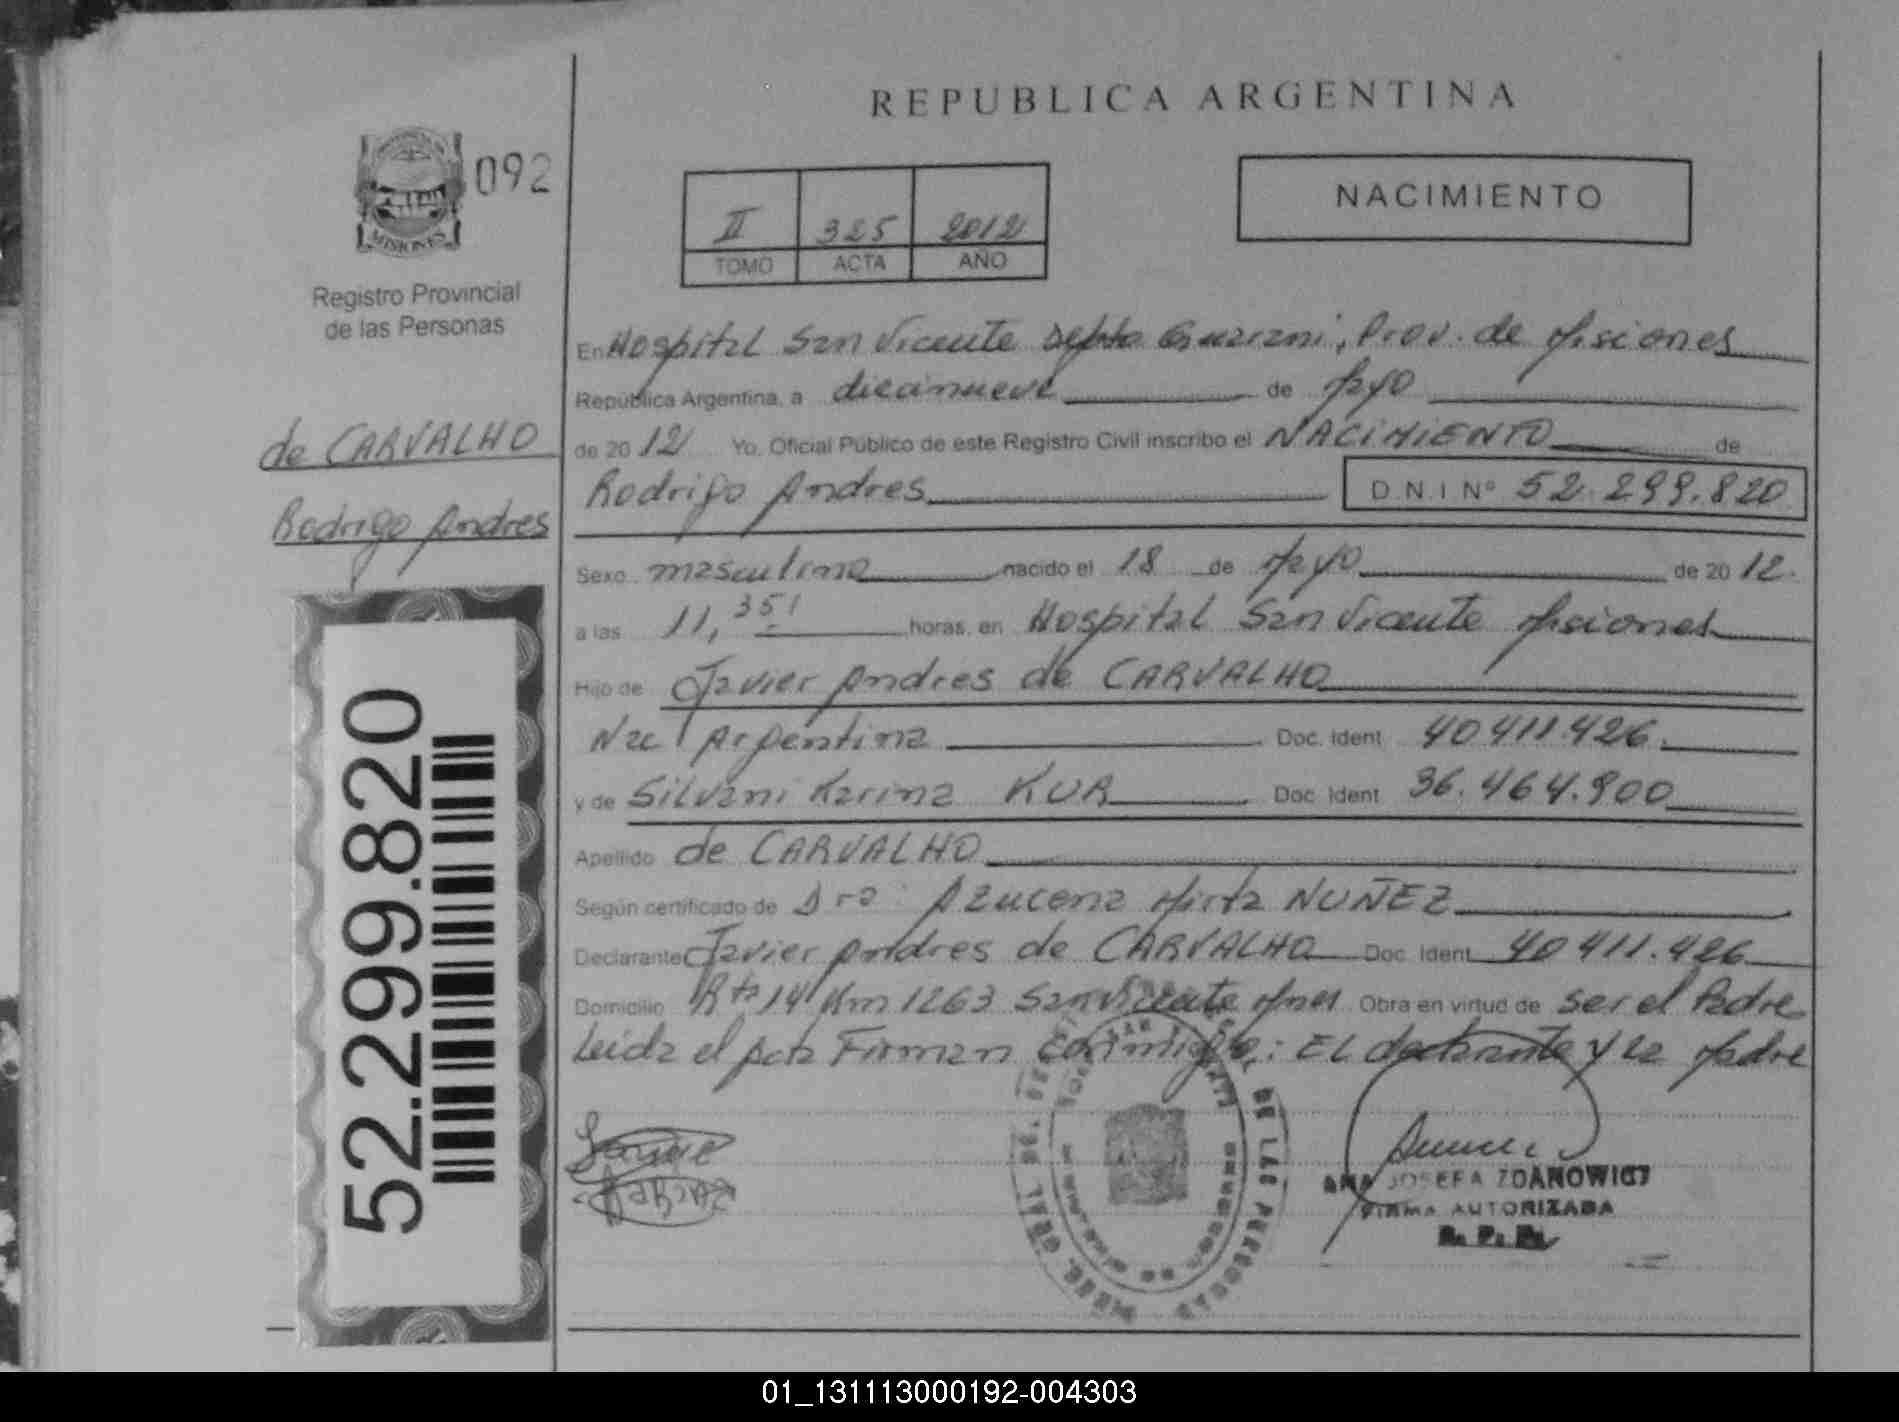 REPUBLICA ARGENTINA
092
MISIONES
Registro Provincial
de las Personas
II 325 2012
TOMO ACTA AÑO
NACIMIENTO
de CARVALHO
Rodrigo Andres
52.299.820
En Hospital San Vicente Depto Guarani, Prov. de Misiones
República Argentina, a diecinueve de Mayo
de 2012 Yo, Oficial Público de este Registro Civil inscribo el NACIMIENTO de
Rodrigo Andres D.N.I Nº 52.299.820
Sexo masculino nacido el 18 de Mayo de 2012.
a las 11,35' horas, en Hospital San Vicente Misiones
Hijo de Javier Andres de CARVALHO
Nac Argentina Doc. Ident 40411.426.
y de Silvani Karina KUR Doc. Ident 36.464.900
Apellido de CARVALHO
Según certificado de Dra. Azucena Mirta NUÑEZ
Declarante Javier Andres de CARVALHO Doc. Ident 40411.426
Domicilio Rta 14 Km 1263 San Vicente Mnes Obra en virtud de ser el Padre
Leida el Acta Firman Conmigo: EL declarante y la Madre
DE LAS PERSONAS
ANA JOSEFA ZDANOWICZ
FIRMA AUTORIZADA
R. P. P.
01_131113000192-004303